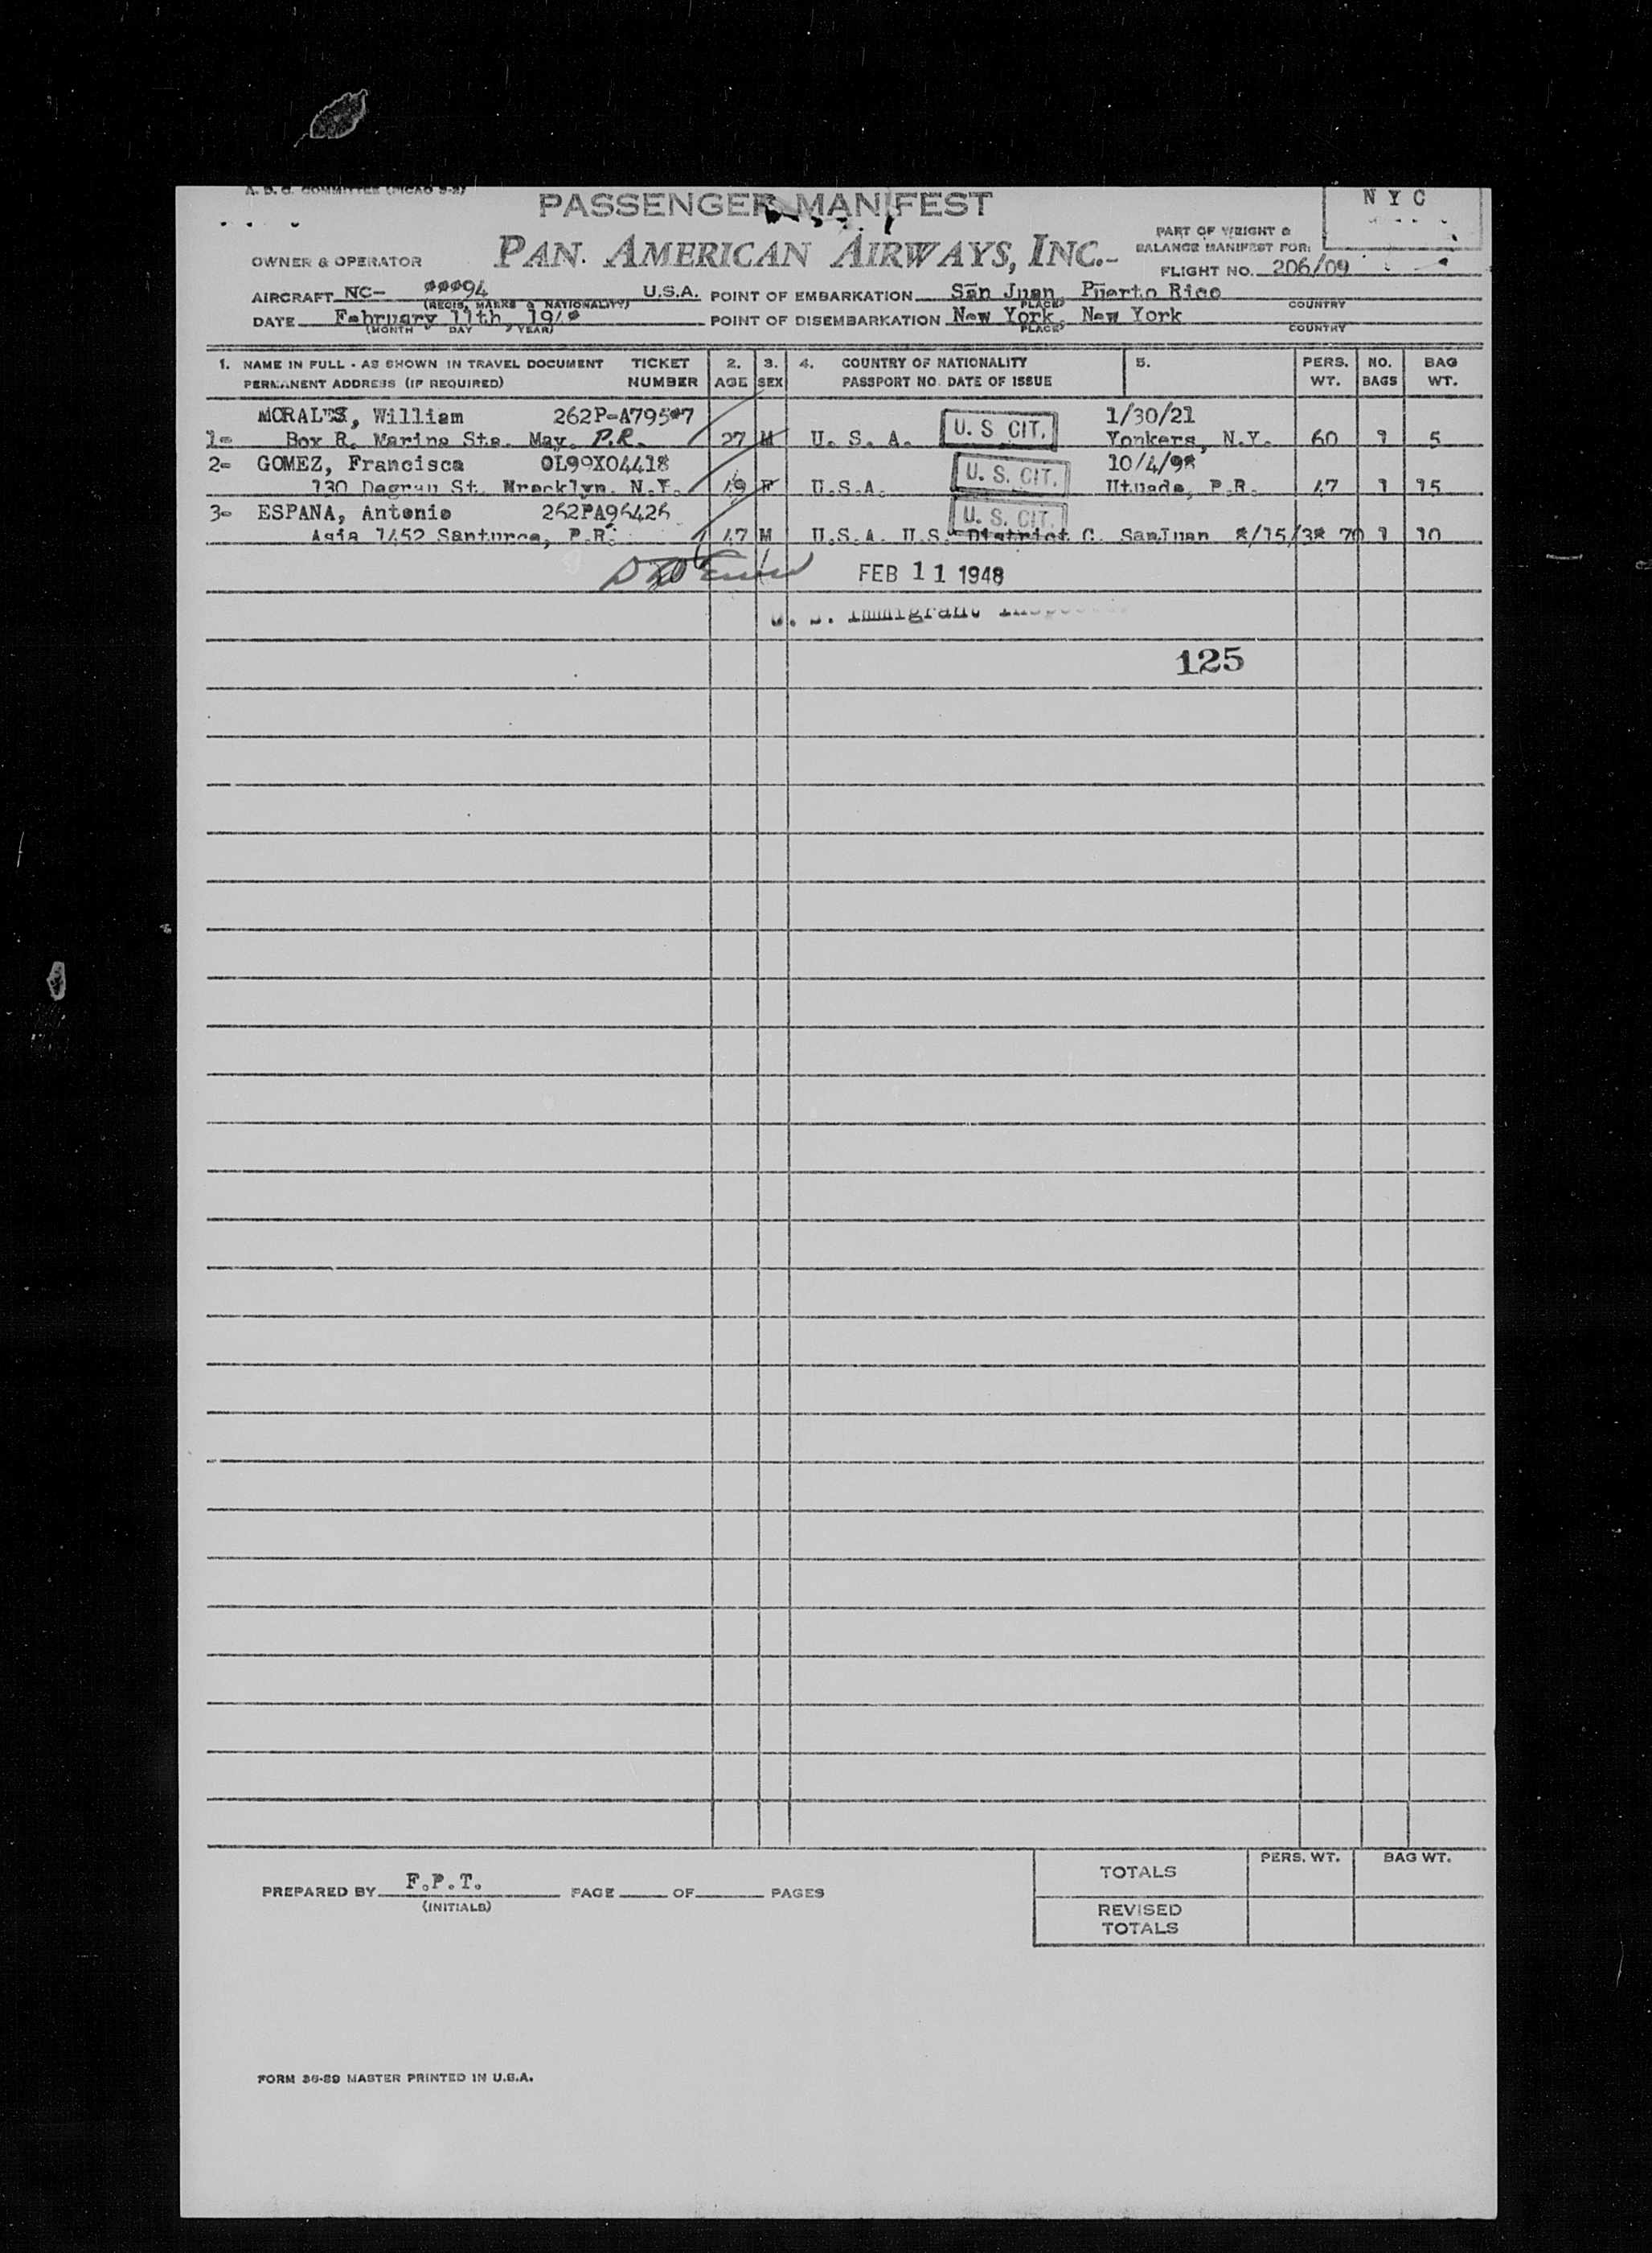 A. D. C. COMMITTEE (PICAO 3-2)
PASSENGER MANIFEST
N Y C
PAN AMERICAN AIRWAYS, INC.
PART OF WEIGHT &
BALANCE MANIFEST FOR:
OWNER & OPERATOR
FLIGHT NO. 206/09
AIRCRAFT NC- U.S.A. POINT OF EMBARKATION San Juan, Puerto Rico
(REGIS. MARKS & NATIONALITY) PLACE COUNTRY
DATE February 11th 194 POINT OF DISEMBARKATION New York, New York
(MONTH DAY YEAR) PLACE COUNTRY
1. NAME IN FULL - AS SHOWN IN TRAVEL DOCUMENT TICKET 2. 3. 4. COUNTRY OF NATIONALITY 5. PERS. NO. BAG
PERMANENT ADDRESS (IF REQUIRED) NUMBER AGE SEX PASSPORT NO. DATE OF ISSUE WT. BAGS WT.
MORALES, William U. S CIT. 1/30/21
1- Box R. Marina Sta. May. P.R. 27 M U. S. A. Yonkers, N.Y. 60 1 5
2- GOMEZ, Francisca 0L99X04418 U. S. CIT. 10/4/98
130 St. N.Y. 49 F U.S.A. Utuado, P.R. 47 1 15
3- ESPANA, Antonio 262PA96426 U. S. CIT.
Asia 1452 Santurce, P.R. 47 M U.S.A. U.S. District C. SanJuan 8/15/38 70 1 10
FEB 11 1948
U. S. Immigrant
125
PREPARED BY F.P.T. PAGE OF PAGES
(INITIALS)
PERS. WT. BAG WT.
TOTALS
REVISED
TOTALS
FORM 36-89 MASTER PRINTED IN U.S.A.